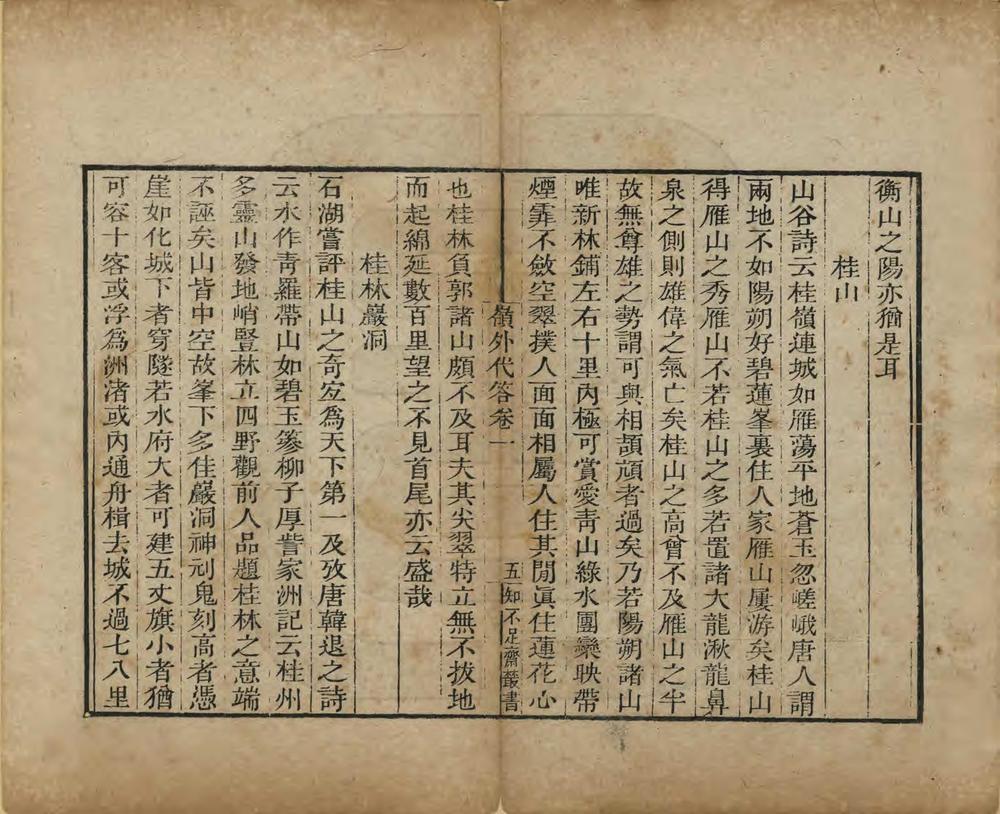 衡山之陽亦猶是耳
桂山
山谷詩云桂嶺連城如雁蕩平地蒼玉忽嵯峨唐人謂
兩地不如陽朔好碧蓮峯裏住人家雁山屢游矣桂山
得雁山之秀雁山不若桂山之多若置諸大龍湫龍鼻
泉之側則雄偉之氣亡矣桂山之高曾不及雁山之半
故無尊雄之勢謂可與相頡頏者過矣乃若陽朔諸山
唯新林鋪左右十里內極可賞愛青山綠水團欒映帶
煙霏不斂空翠撲人面面相屬人住其閒眞住蓮花心
嶺外代答卷一
五
知不足齋叢書
也桂林負郭諸山頗不及耳夫其尖翠特立無不拔地
而起綿延數百里望之不見首尾亦云盛哉
桂林巖洞
石湖嘗評桂山之奇宜爲天下第一及攷唐韓退之詩
云水作青羅帶山如碧玉簪柳子厚訾家洲記云桂州
多靈山發地峭豎林立四野觀前人品題桂林之意端
不誣矣山皆中空故峯下多佳巖洞神刓鬼刻高者憑
崖如化城下者穿隧若水府大者可建五丈旗小者猶
可容十客或浮爲洲渚或內通舟楫去城不過七八里